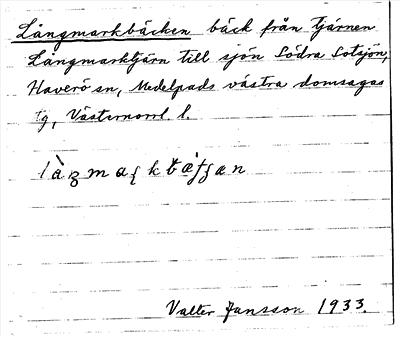 Långmarkbäcken bäck från tjärnen
Långmarktjärn till sjön Södra Sotsjön,
Haverö sn, Medelpads västra domsagas
tg, Västernorrl. l.
Valter Jansson 1933.